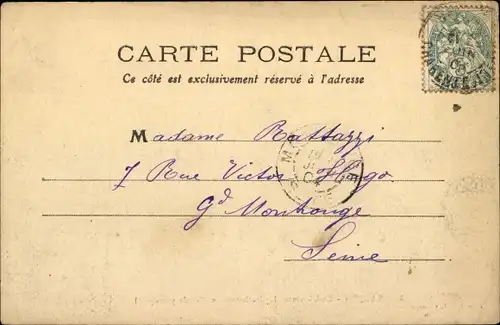 CARTE POSTALE
Ce côté est exclusivement réservé à l'adresse
Madame Rattazzi
7 Rue Victor Hugo
Gd Montrouge
Seine